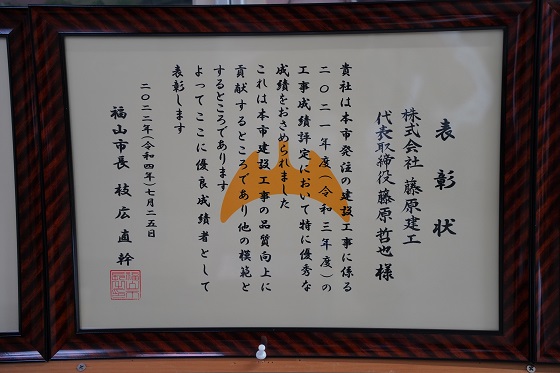 表彰状
株式会社 藤原建工
代表取締役 藤原哲也様
貴社は本市発注の建設工事に係る
二〇二一年度(令和三年度)の
工事成績評定において特に優秀な
成績をおさめられました
これは本市建設工事の品質向上に
貢献するところであり他の模範と
するところであります
よってここに優良成績者として
表彰します
二〇二二年(令和四年)七月二五日
福山市長 枝広直幹